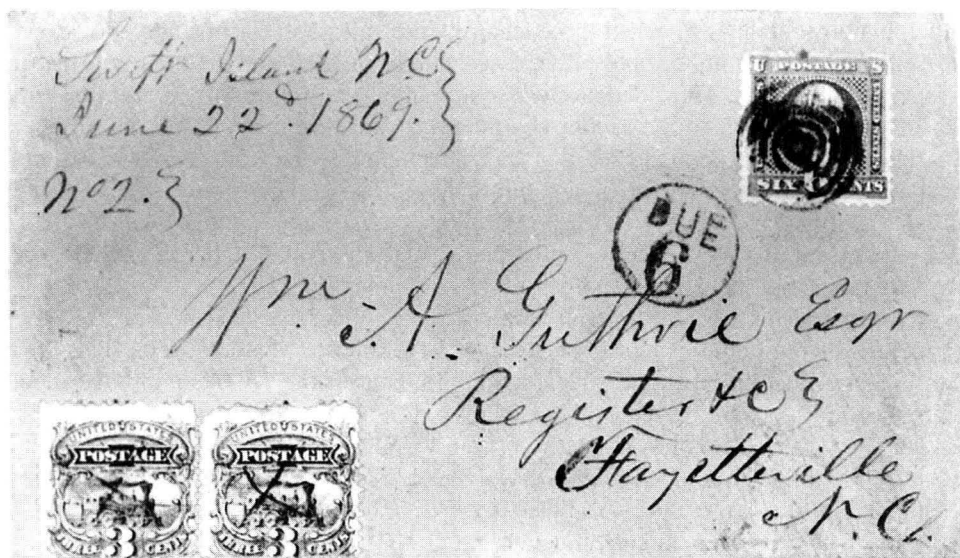 Swift Island N.C.
June 22d. 1869.
No 2.
U POSTAGE S
SIX CENTS
DUE
6
Wm. A. Guthrie Esqr
Register &c
Fayetteville
N.C.
UNITED STATES
POSTAGE
3
THREE CENTS
UNITED STATES
POSTAGE
3
THREE CENTS